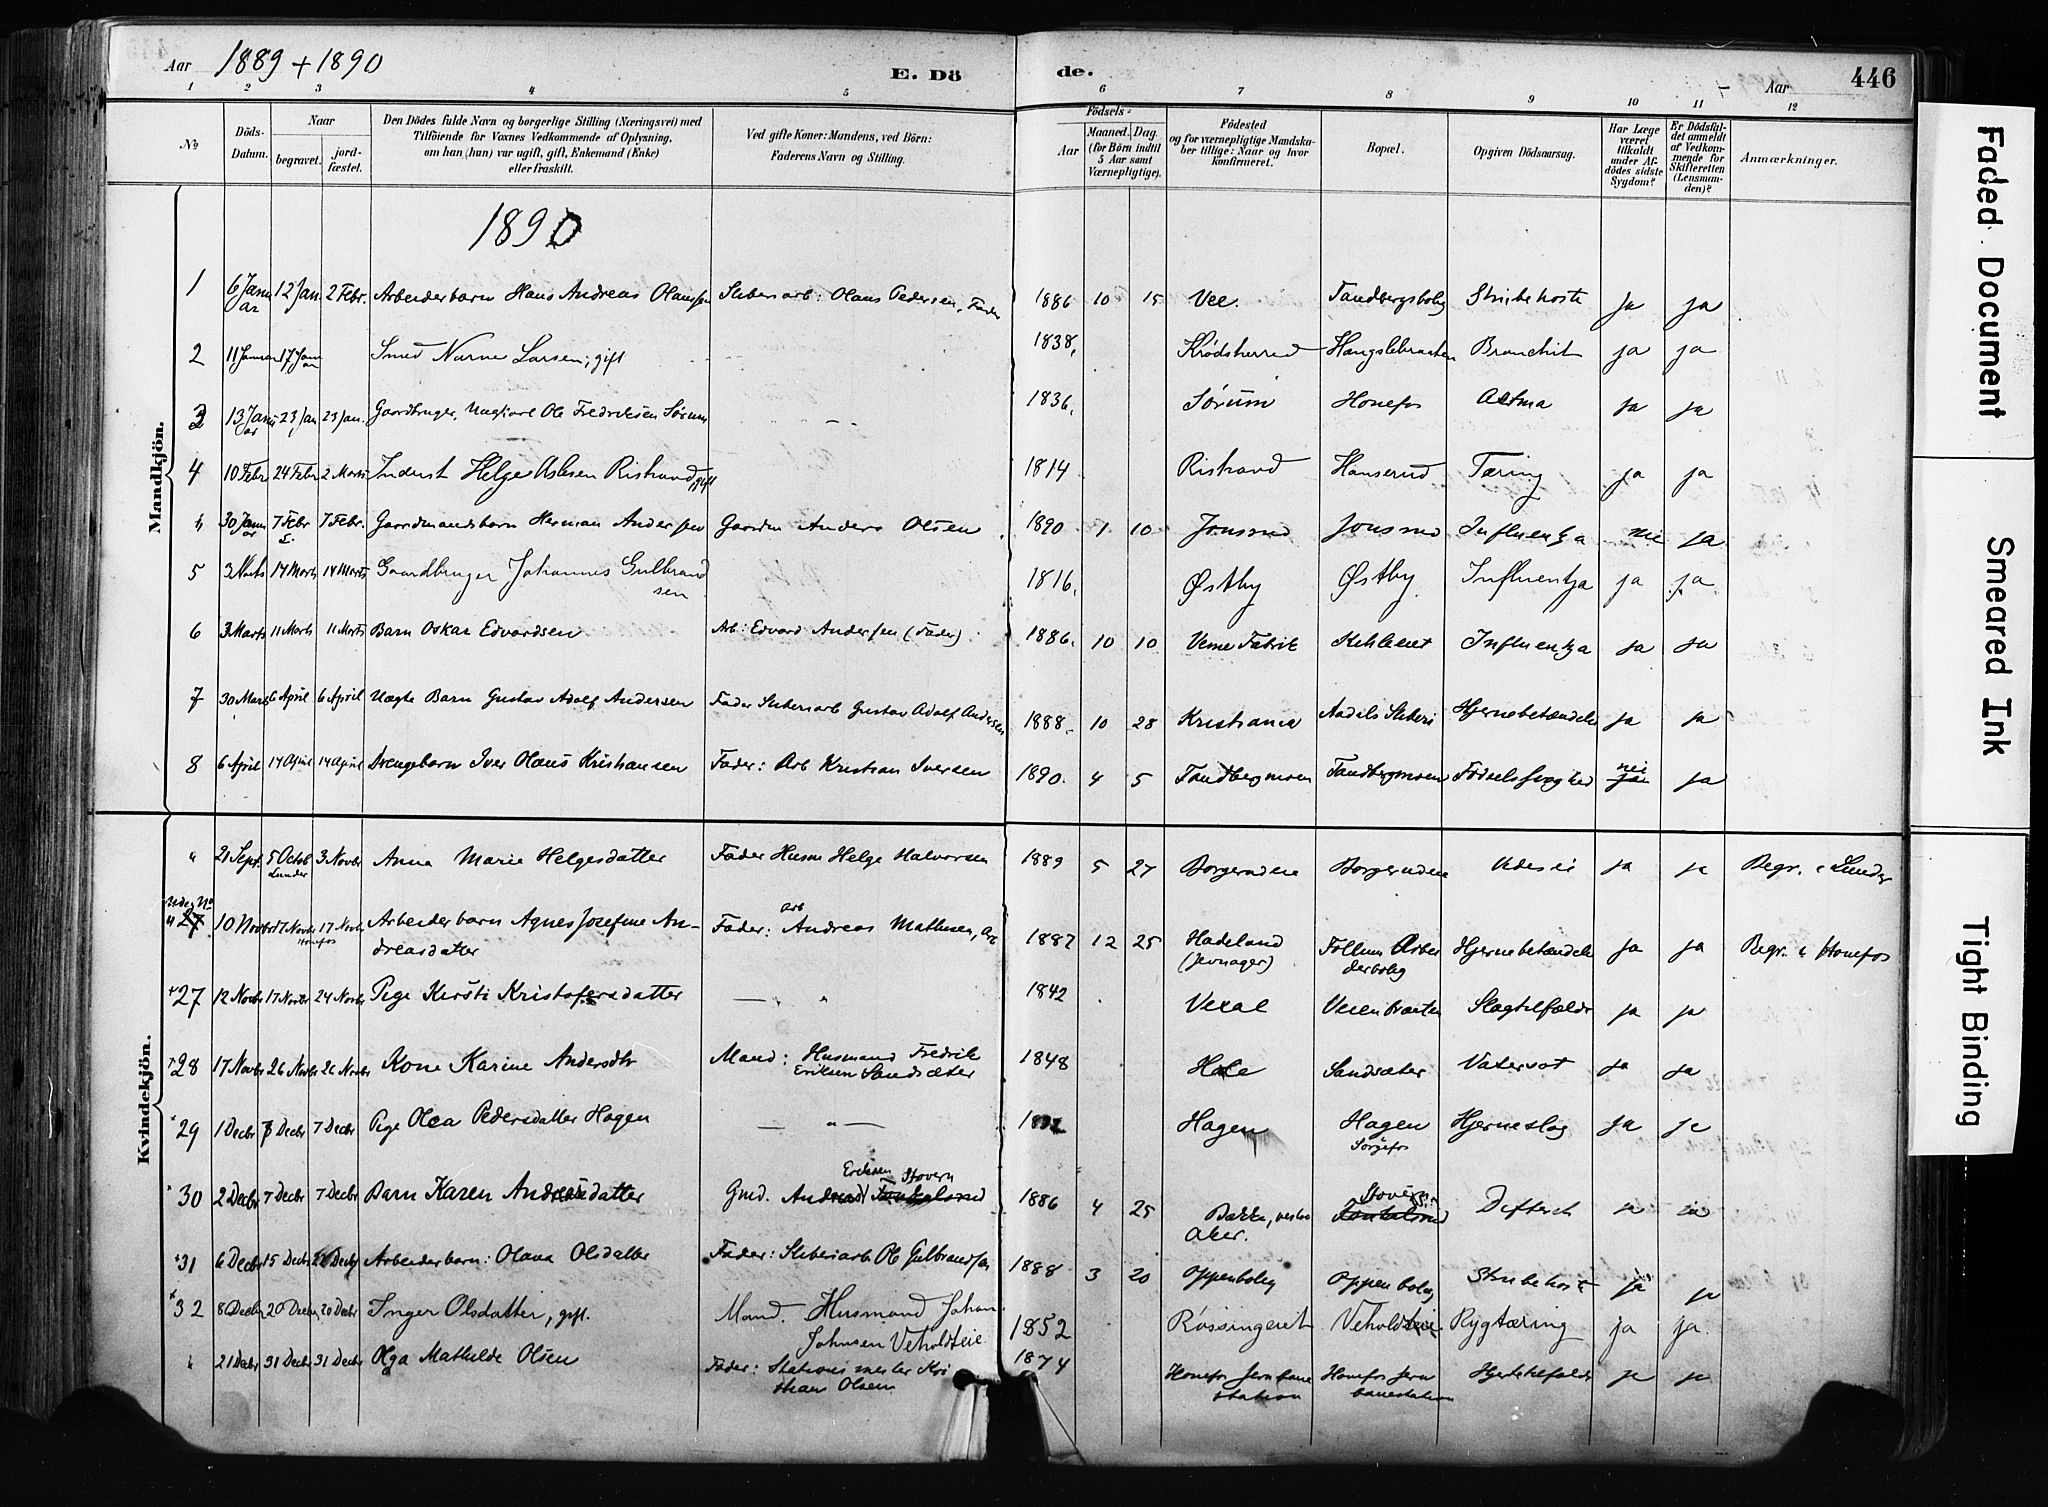 Aar 1889 + 1890 E. Dö de. Aar 446
1 2 3 4 5 6 7 8 9 10 11 12
No Döds-Datum. Naar begravet. jord-fæstet. Den Dödes fulde Navn og borgerlige Stilling (Næringsvei) med Tilföiende for Voxnes Vedkommende af Oplysning, om han (hun) var ugift, gift, Enkemand (Enke) eller fraskilt. Ved gifte Koner: Mandens, ved Börn: Faderens Navn og Stilling. Födsels- Aar Maaned. Dag. (for Börn indtil 5 Aar samt Værnepligtige). Födested og for værnepligtige Mandska-ber tillige: Naar og hvor konfirmeret. Bopæl. Opgiven Dödsaarsag. Har Læge været tilkaldt under Af-dödes sidste Sygdom? Er Dödsfal-det anmeldt af Vedkom-mende for Skifteretten (Lensman-den)? Anmærkninger.
Mandkjön.
1890
1 6 Janu ar 12 Jan 2 Febr. Arbeiderbarn Hans Andreas Olaussen Sliberiarb: Olaus Pedersen, Fader 1886 10 15 Vee. Tandbergsbolig Strubehoste Ja ja
2 11 Januar 17 Jan Smed Larsen, gift 1838, Krødsherred Bronchit ja ja
3 13 Janu ar 23 Jan 23 Jan. Gaardbruger, Ungkarl Ole Fredriksen Sørum - - 1836, Sørum Honefos Astma Ja ja
4 10 Febr 24 Febr 2 Marts Inderst Helge Aslesen Ristrand, gift 1814 Ristrand Hanserud Tæring ja ja
" 30 Janu ar 7 Febr 7 Febr. Gaardmandsbarn Herman Andersen Gaardm Anders Olsen 1890 1 10 Jonsrud Jonsrud Influentza nei ja
5 3 Marts 14 Marts 14 Marts Gaardbruger Johannes Gulbrand
sen 1816, Østby Østby. Influentza ja ja
6 3 Marts 11 Marts 11 Marts Barn Oskar Edvardsen Arb: Edvard Andersen (Fader) 1886. 10 10 Veme Fabrik Influentza Ja Ja
7 30 Marts 6 April 6 April Uægte Barn Gustav Adolf Andersen Fader Sliberiarb Gustav Adolf Andersen 1888. 10 28 Kristiania Aadals Sliberi Hjernebetændelse ja ja
8 6 April 14 April 14 April Drengebarn Iver Olaus Kristiansen Fader: Arb Kristian Iversen 1890. 4 5 Tandbergmoen Tandbergmoen Fødselssvaghed nei ja ja
Kvindekjön.
" 21 Sept. 5 Octob Lunder 3 Novbr Anna Marie Helgesdatter Fader Husm Helge Halvorsen 1889 5 27 Borgerudeie Borgerudeie Vides ei ja ja Begr. i Lunder
Uden No
" 27 10 Novbr 17 Novbr Honefos 17 Novbr Arbeiderbarn Agnes Josefine An-
dreasdatter Fader: Arb Andreas Mathisen, Arb 1887 12 25 Hadeland (Jevnager) Follum Arbei
derbolig Hjernebetændelse ja ja Begr. i Honefos
+27 12 Novbr 17 Novbr 24 Novbr Pige Kirsti Kristofersdatter — " 1842 Vexal Veienbraaten Slagtilfælde ja ja
+28 17 Novbr 26 Novbr 26 Novbr Kone Karine Andersdtr Mand: Husmand Fredrik
Eriksen Sandsæter 1848 Hole Sandsæter Vatersot Ja ja
+29 1 Decbr 7 Decbr 7 Decbr Pige Olea Pedersdatter Hagen — " — Hagen Hagen
Sørgefos Hjerneslag Ja je
30 2 Decbr 7 Decbr 7 Decbr Barn Karen Andreasdatter Gmd. Andreas Eriksen Stovern 1886 4 25 Bakke, vestre
Aker. Stovern Difterit ja ja
+31 6 Decbr 15 Decbr 22 Decbr Arbeiderbarn: Olava Olsdatter Fader: Sliberiarb Ole Gulbrandsen 1888 3 20 Oppenbolig Oppenbolig Strubehoste ja ja
+32 8 Decbr 20 Decbr 20 Decbr Inger Olsdatter, gift. Mand. Husmand Johan
Johnsen Veholdteie 1852 Røssingeret Veholdteie Rygtæring ja ja.
" 21 Decbr 31 Decbr 31 Decbr Olga Mathilde Olsen Fader: Stationsmester Kri
stian Olsen 1874 Honefos Jernbane
station Honefos Jern
banestation Hjertetilfælde je je
Faded Document
Smeared Ink
Tight Binding